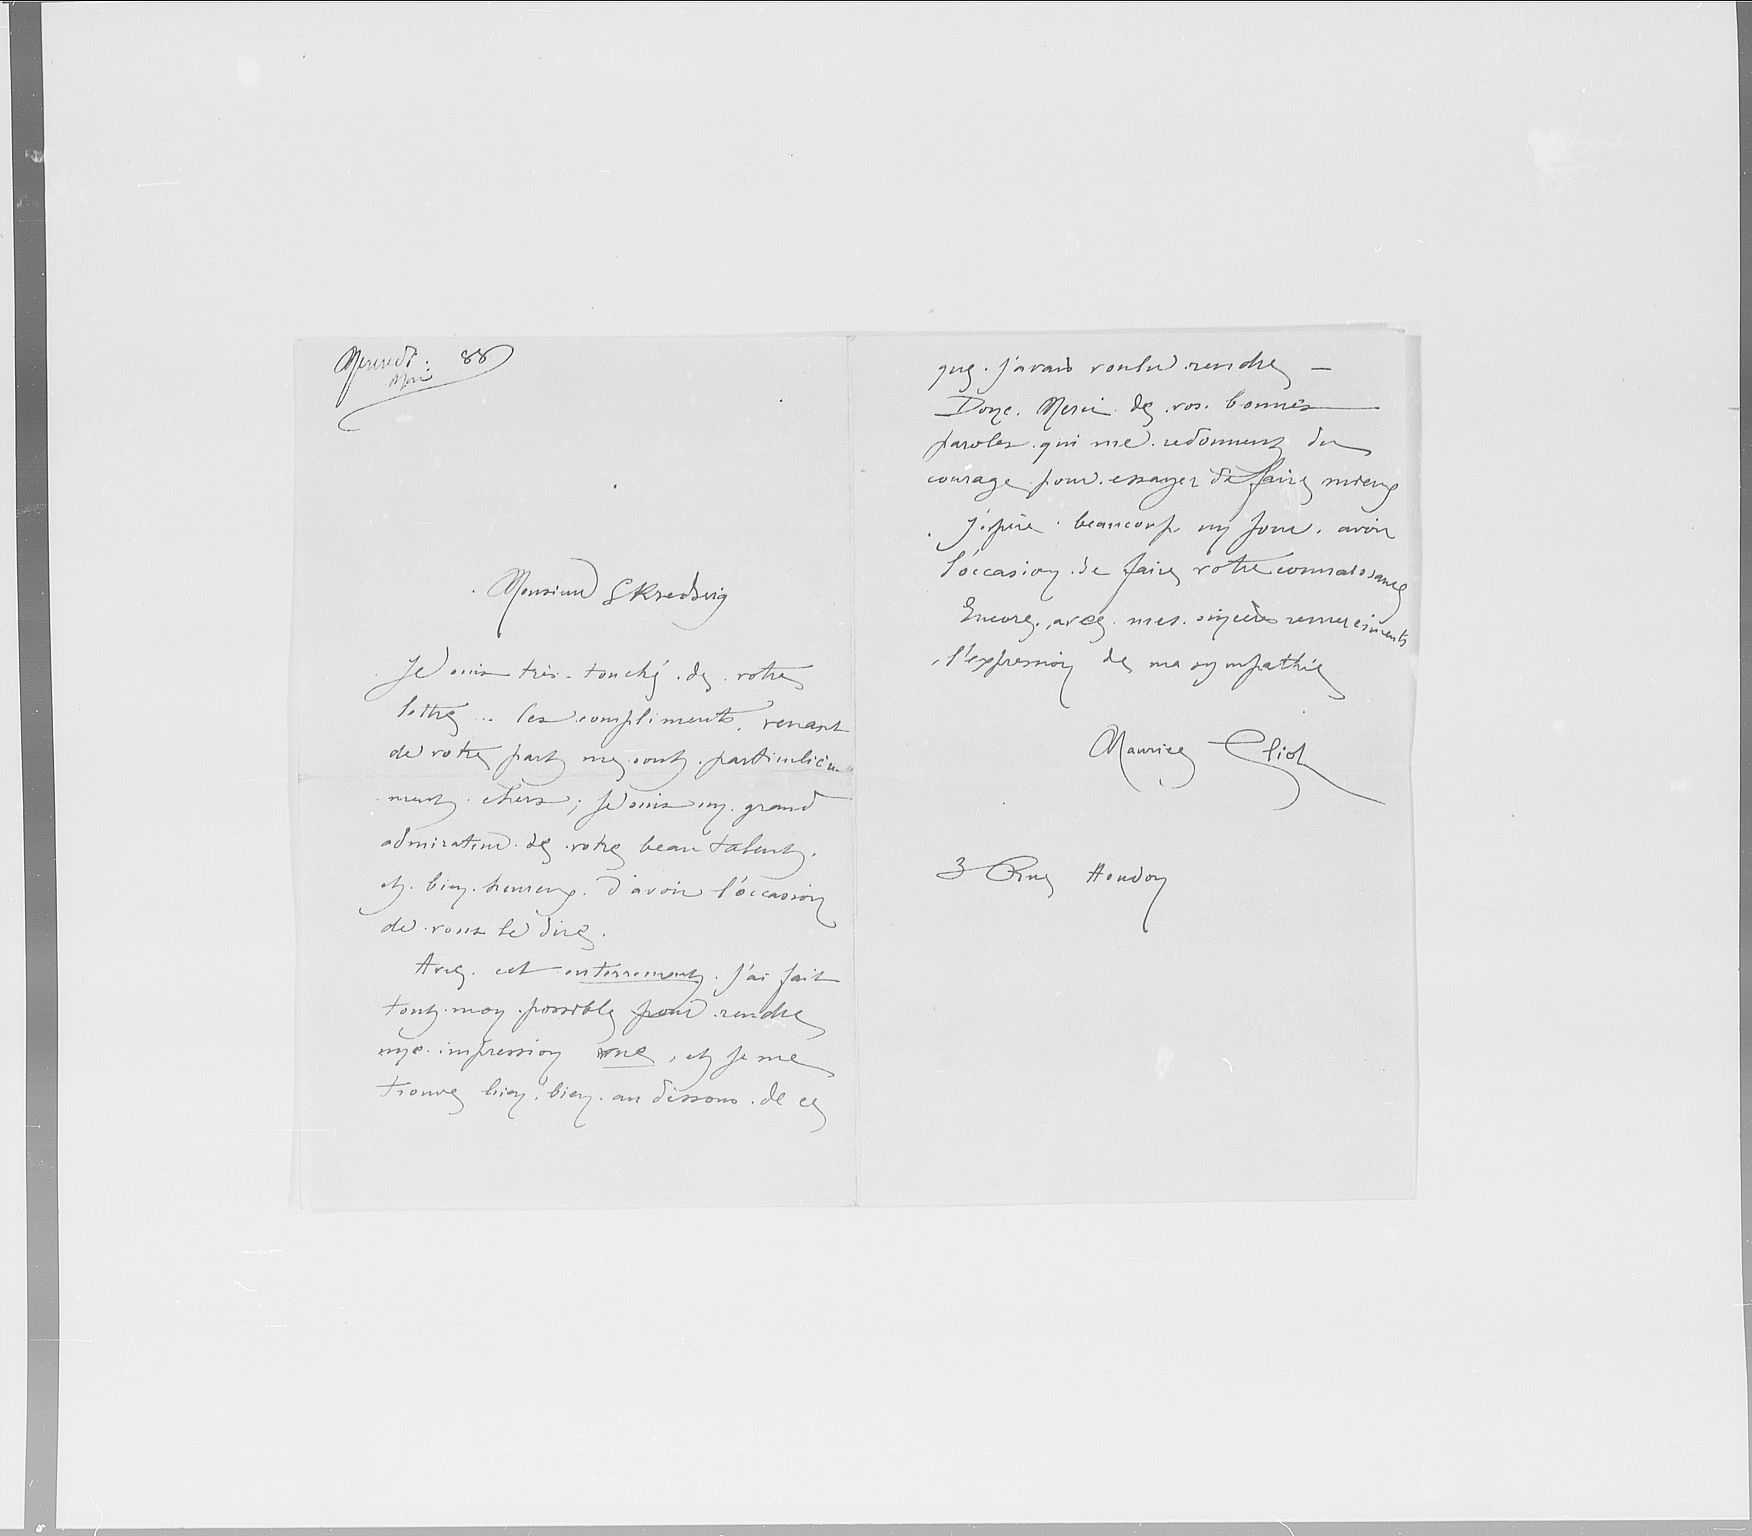 Mercredi. 88
Mai
Monsieur Skredsvig
Je suis très touché de votre
lettre .. les compliments, venant
de votre part me sont particulière
ment chers; Je suis un grand
admirateur de votre beau talent.
et bien heureux d'avoir l'occasion
de vous le dire.
Avec cet enterrement j'ai fait
tout mon possible pour rendre
une impression vue, et je me
trouve bien, bien au dessous de ce
que j'avais voulu rendre —
Donc. Merci de vos bonnes
paroles qui me redonnent du
courage pour essayer de faire mieux
J'espère beaucoup un jour avoir
l'occasion de faire votre connaissance
Encore, avec mes sincères remerciments
, l'expression de ma sympathie
Maurice Eliot
3 Rue Houdon